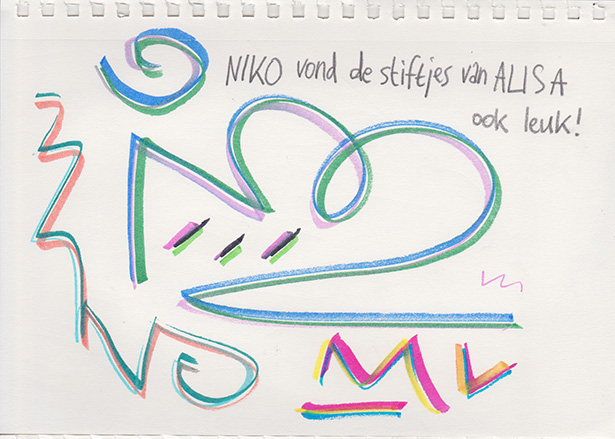 NIKO vond de stiftjes van ALISA
ook leuk!